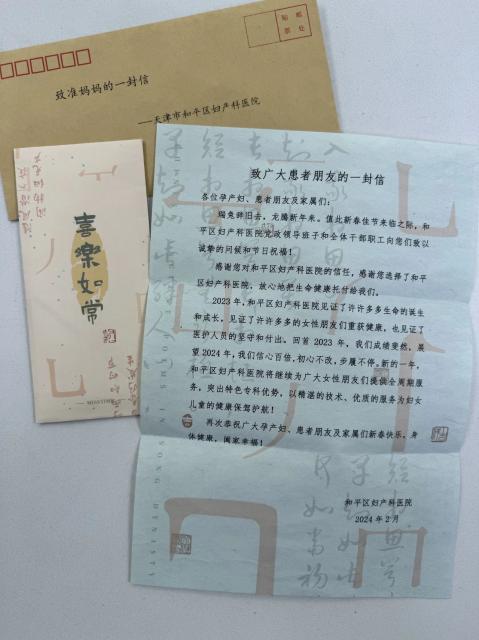 贴 邮
票 处
致准妈妈的一封信
——天津市和平区妇产科医院
喜樂如常
致广大患者朋友的一封信
各位孕产妇、患者朋友及家属们：
瑞兔辞旧去，龙腾新年来。值此新春佳节来临之际，和
平区妇产科医院党政领导班子和全体干部职工向您们致以
诚挚的问候和节日祝福！
感谢您对和平区妇产科医院的信任，感谢您选择了和平
区妇产科医院，放心地把生命健康托付给我们。
2023 年，和平区妇产科医院见证了许许多多生命的诞生
和成长，见证了许许多多的女性朋友们重获健康，也见证了
医护人员的坚守和付出。回首 2023 年，我们成绩斐然，展
望 2024 年，我们信心百倍，初心不改，步履不停。新的一年，
和平区妇产科医院将继续为广大女性朋友们提供全周期服
务，突出特色专科优势，以精湛的技术、优质的服务为妇女
儿童的健康保驾护航！
再次恭祝广大孕产妇、患者朋友及家属们新春快乐，身
体健康，阖家幸福！
和平区妇产科医院
2024 年 2 月
SONG DYNASTY